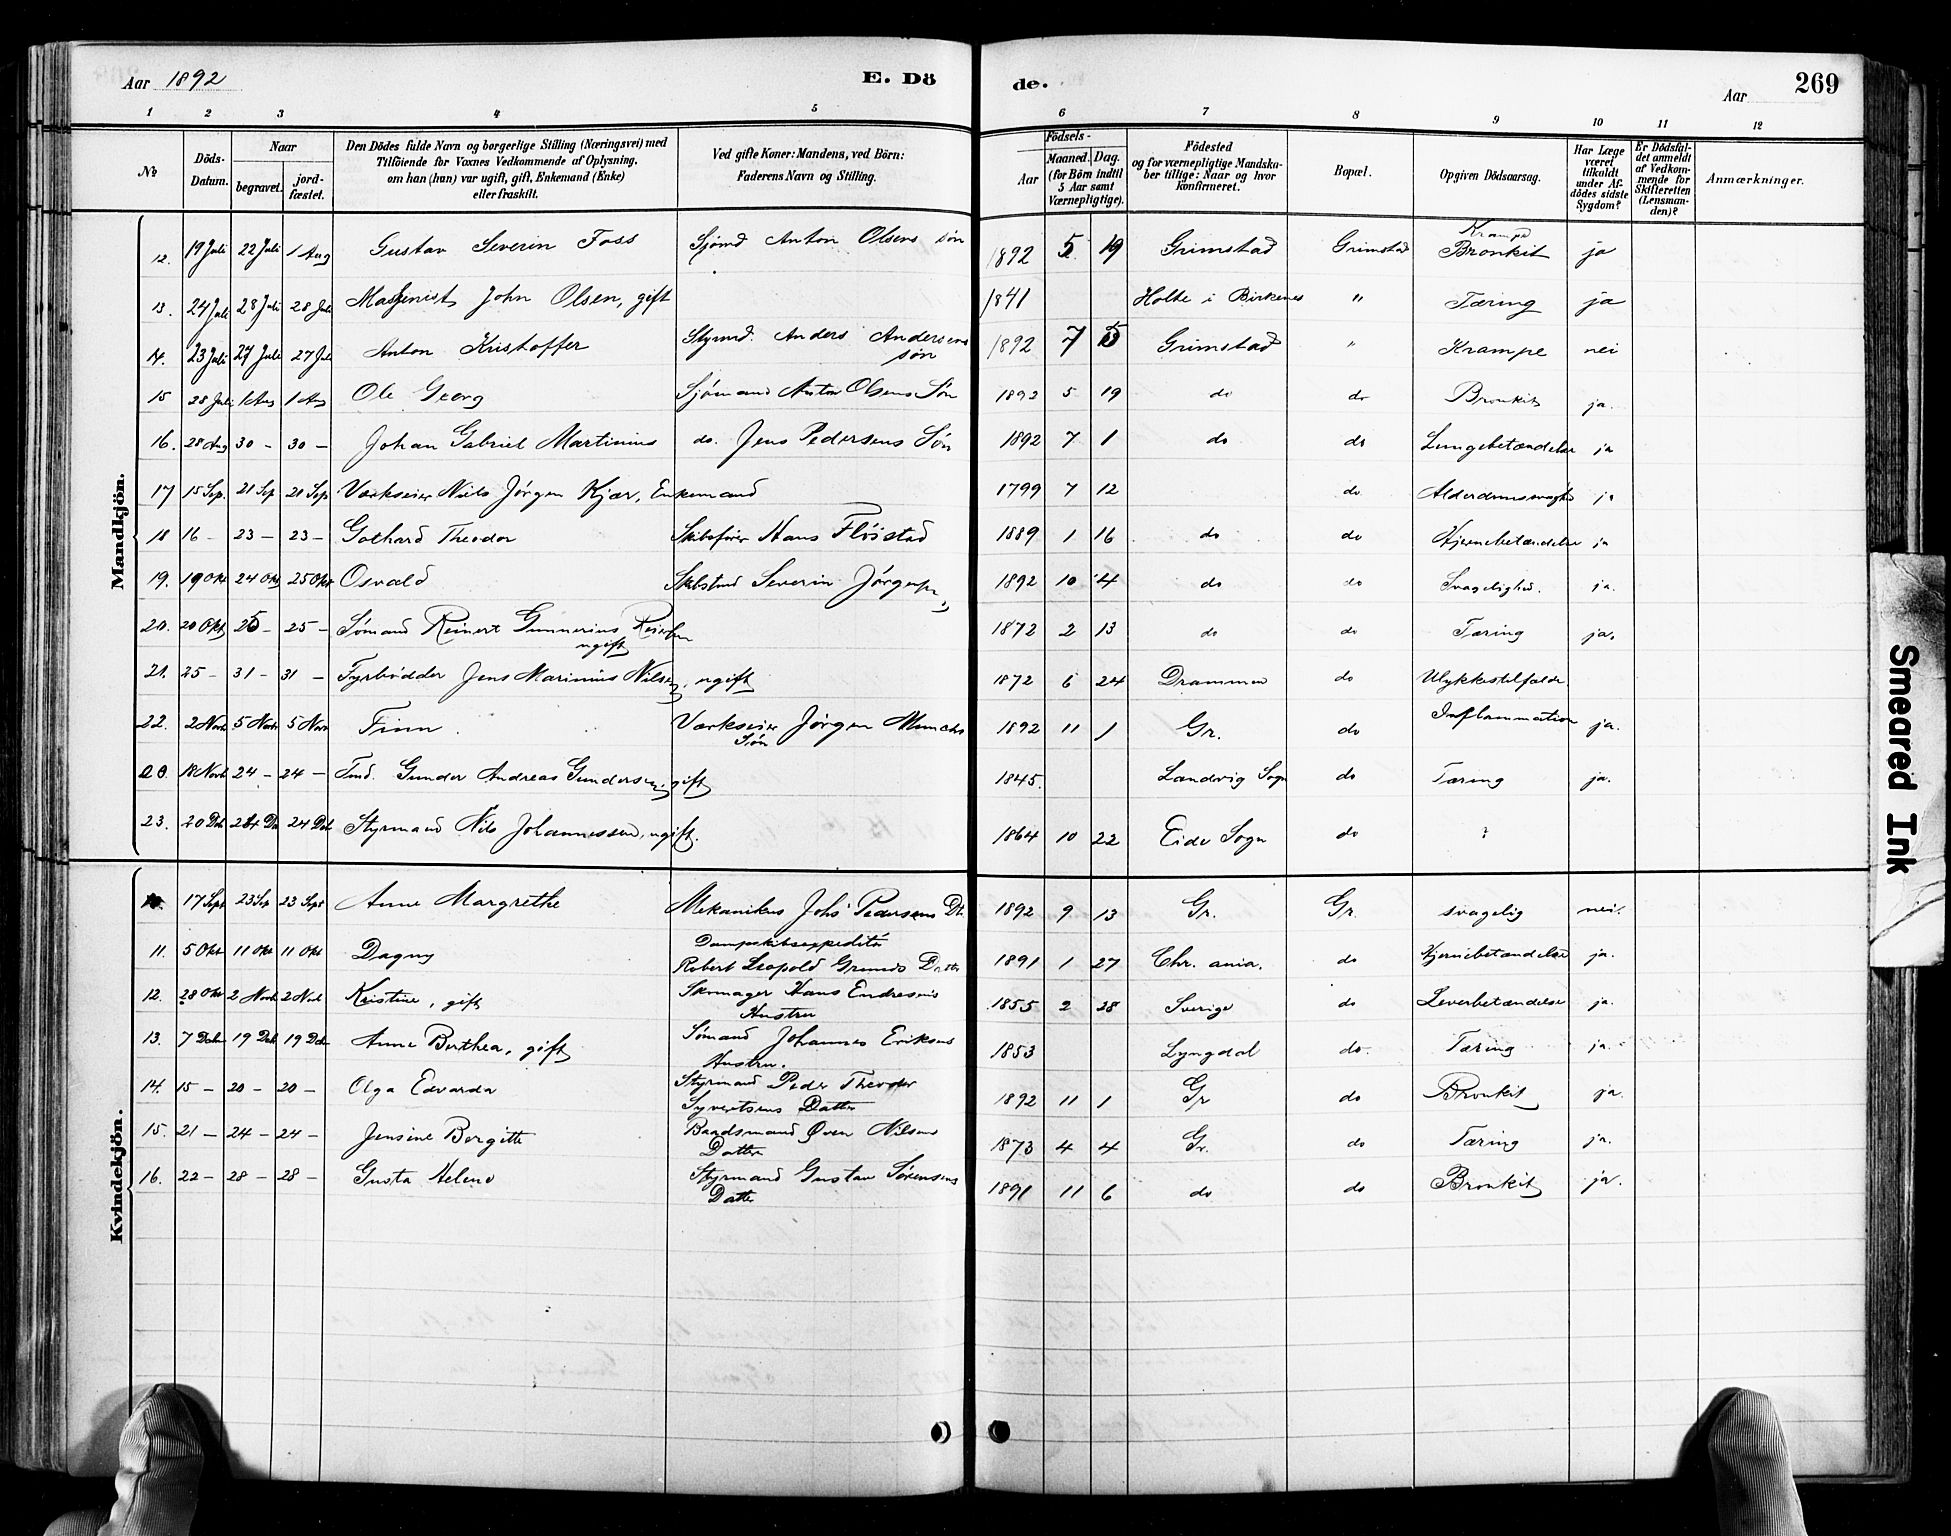 Aar 1892
E. Dö
de.
Aar
269
1 2 3 4 5 6 7 8 9 10 11 12
№
Döds-Datum.
Naar
begravet.
jord-fæstet.
Den Dödes fulde Navn og borgerlige Stilling (Næringsvei) med
Tilföiende for Voxnes Vedkommende af Oplysning,
om han (hun) var ugift, gift, Enkemand (Enke)
eller fraskilt.
Ved gifte Koner: Mandens, ved Börn:
Faderens Navn og Stilling.
Födsels-
Aar
Maaned. Dag.
(for Börn indtil
5 Aar samt
Værnepligtige).
Födested
og for værnepligtige Mandska-
ber tillige: Naar og hvor
konfirmeret.
Bopæl.
Opgiven Dödsaarsag.
Har Læge
været
tilkaldt
under Af-
dödes sidste
Sygdom?
Er Dödsfal-
det anmeldt
af Vedkom-
mende for
Skifteretten
(Lensman-
den)?
Anmærkninger.
Mandkjön.
12. 19 Juli 22 Juli 1 Aug Gustav Severin Foss Sjømd Anton Olsens søn 1892 5 19 Grimstad Grimstad Krampe Bronkit ja
13. 24 Juli 28 Juli 28 Juli Maskinist John Olsen, gift 1841 Holte i Birkenes " Tæring ja
14. 23 Juli 27 Juli 27 Juli Anton Kristoffer Styrmd. Anders Andersens søn 1892 7 Grimstad " Krampe nei
15 28 Juli 1 Aug 1 Aug Ole Georg Sjømand Anton Olsens Søn 1892 5 19 do do Bronkit ja.
16. 28 Aug 30 - 30 - Johan Gabriel Martinius do. Jens Pedersens Søn 1892 7 1 do do Lungebetændelse ja
17 15 Sep. 21 Sep 21 Sep. Værkseier Niels Jørgen Kjær, Enkemand 1799 7 12 do Alderdomssvaghed ja
18 16 - 23 - 23 - Gothard Theodor Skibsfører Hans Fløistad 1889 1 16 do do Hjernebetændelse ja
19. 19 Okt 24 Okt 25 Okt Osvald Severin 1892 10 4 do do Svagelighed. ja.
20. 20 Okt 25 - 25 - Sømand Reinert Gunnerius Reiersen ugift 1872 2 13 do do Tæring ja.
21. 25 - 31 - 31 - Fyrbødder Jens Marinius Nilsen, ugift 1872 6 24 Drammen do Ulykkestilfælde.
22. 2 Novb 5 Novb 5 Nov Finn. Værkseier Jørgen Munchs Søn 1892 11 1 Gr. do Inflammation ja.
18 Novb 24 - 24 - Tmd. Gunder Andreas Gundersen, gift 1845. Landvig Sogn do Tæring ja.
23. 20 Deb 24 Db 24 Deb Styrmand Nils Johannessen, ugift. 1864 10 22 Eide Sogn do ?
Kvindekjön.
17 Sept 23 Sep 23 Sept Anne Margrethe Mekanikus Johs Pedersens Dt. 1892 9 13 Gr. Gr. svagelig nei.
11. 5 Okt 11 Okt 11 Okt Dagny Dampskibsexpeditør Robert Leopold Datter 1891 1 27 Chr. ania. do Hjernebetændelse ja.
12. 28 Okt 2 Novb 2 Novb Kristine, gift Skomager Hans Endresens Hustru 1855 2 28 Sverige do Leverbetændelse ja.
13. 7 Deb 19 Deb 19 Deb Anne Berthea, gift Sømand Johannes Eriksens Hustru. 1853 Lyngdal do. Tæring ja.
14. 15 - 20 - 20 - Olga Edvarda Styrmand Peder Theodor Syvertsens Datter 1892 11 1 Gr do Bronkit ja.
15. 21 - 24 - 24 - Jensine Bergitte Baadsmand Øven Nilsens Datter 1873 4 4 Gr. do Tæring ja.
16. 22 - 28 - 28 - Gusta Helene Styrmand Gustav Sørensens Datter 1891 11 6 do do Bronkit ja.
Smeared Ink